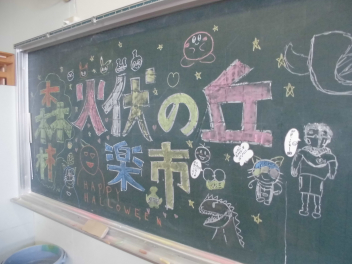 火伏の丘
楽市
HAPPY
HALLOWEEN